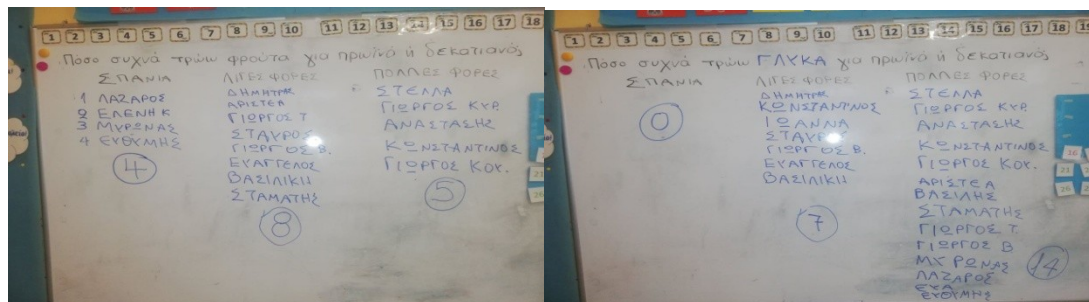 1 2 3 4 5 6 7 8 9 10 11 12 13 14 15 16 17 18
Πόσο συχνά τρώω φρούτα για πρωϊνό ή δεκατιανό;
ΣΠΑΝΙΑ
1 ΛΑΖΑΡΟΣ
2 ΕΛΕΝΗ Κ
3 ΜΥΡΩΝΑΣ
4 ΕΥΘΥΜΗΣ
4
ΛΙΓΕΣ ΦΟΡΕΣ
ΔΗΜΗΤΡΗΣ
ΑΡΙΣΤΕΑ
ΓΙΩΡΓΟΣ Τ.
ΣΤΑΥΡΟΣ
ΓΙΩΡΓΟΣ Β.
ΕΥΑΓΓΕΛΟΣ
ΒΑΣΙΛΙΚΗ
ΣΤΑΜΑΤΗΣ
8
ΠΟΛΛΕΣ ΦΟΡΕΣ
ΣΤΕΛΛΑ
ΓΙΩΡΓΟΣ ΚΥΡ.
ΑΝΑΣΤΑΣΗΣ
ΚΩΝΣΤΑΝΤΙΝΟΣ
ΓΙΩΡΓΟΣ ΚΟΥ.
5
1 2 3 4 5 6 7 8 9 10 11 12 13 14 15 16 17 18
Πόσο συχνά τρώω ΓΛΥΚΑ για πρωϊνό ή δεκατιανό;
ΣΠΑΝΙΑ
0
ΛΙΓΕΣ ΦΟΡΕΣ
ΔΗΜΗΤΡΗΣ
ΚΩΝΣΤΑΝΤΙΝΟΣ
ΙΩΑΝΝΑ
ΣΤΑΥΡΟΣ
ΓΙΩΡΓΟΣ Β.
ΕΥΑΓΓΕΛΟΣ
ΒΑΣΙΛΙΚΗ
7
ΠΟΛΛΕΣ ΦΟΡΕΣ
ΣΤΕΛΛΑ
ΓΙΩΡΓΟΣ ΚΥΡ.
ΑΝΑΣΤΑΣΗΣ
ΚΩΝΣΤΑΝΤΙΝΟΣ
ΓΙΩΡΓΟΣ ΚΟΥ.
ΑΡΙΣΤΕΑ
ΒΑΣΙΛΗΣ
ΣΤΑΜΑΤΗΣ
ΓΙΩΡΓΟΣ Τ.
ΓΙΩΡΓΟΣ Β
ΜΥΡΩΝΑΣ
ΛΑΖΑΡΟΣ
ΕΥΑ
ΕΥΘΥΜΗΣ
14